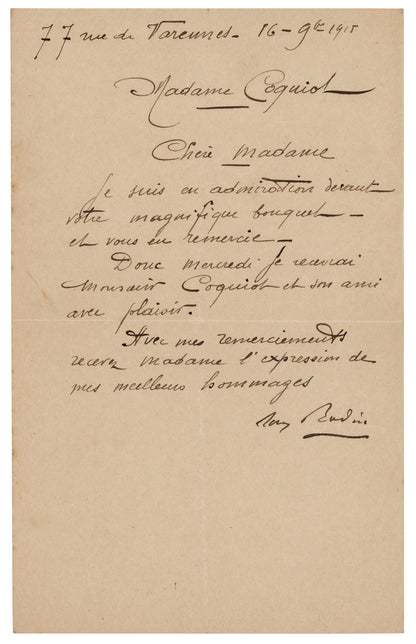 77 rue de Varennes - 16 - 9bre 1915
Madame Coquiot
Chère Madame
Je suis en admiration devant
votre magnifique bouquet -
et vous en remercie -
Donc mercredi je recevrai
Monsieur Coquiot et son ami
avec plaisir.
Avec mes remerciements
recevez Madame l'expression de
mes meilleurs hommages
Aug Rodin